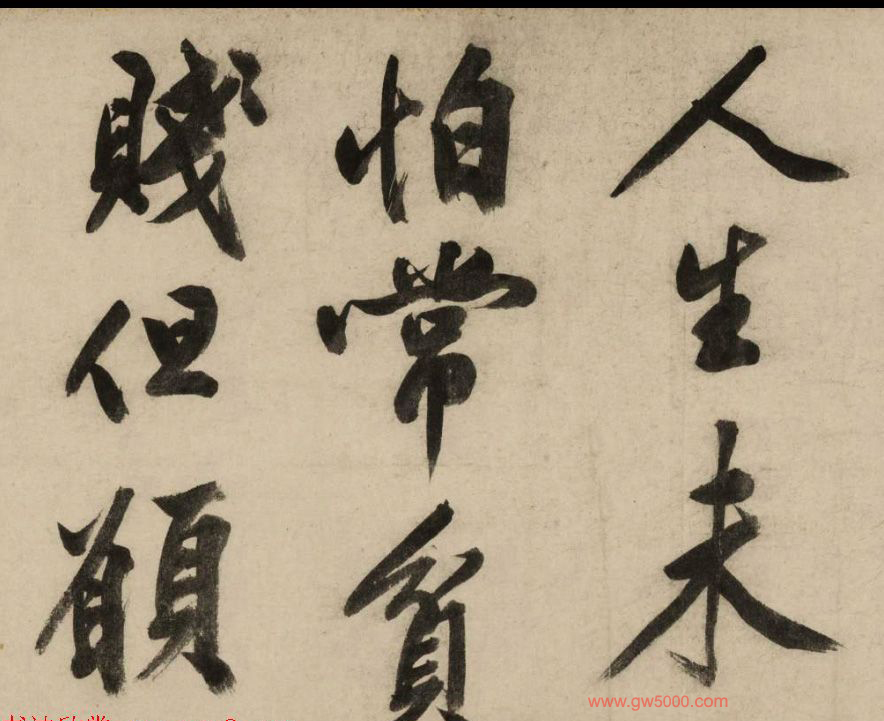 人生未
怕常貧
賤但願
www.gw5000.com